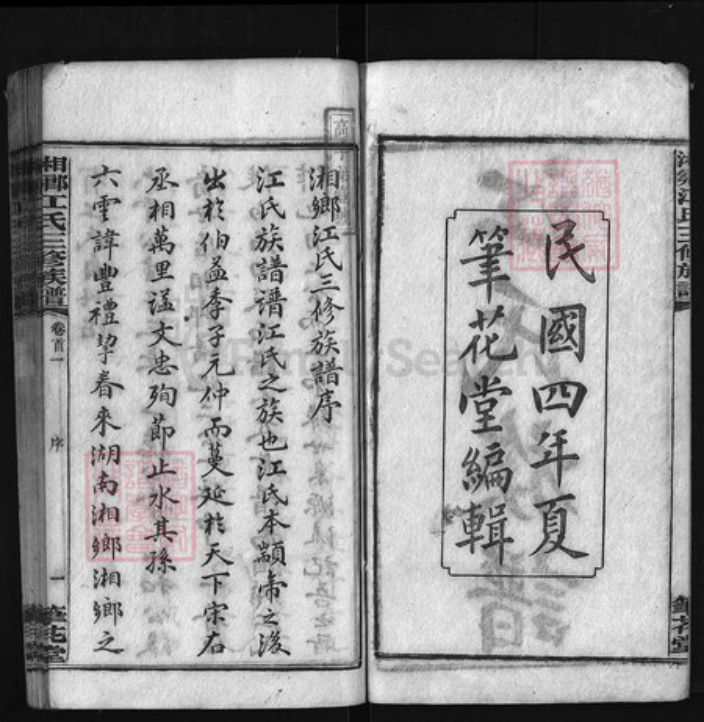 民國四年夏
筆花堂編輯
湘鄉江氏三修族譜序
江氏族譜譜江氏之族也江氏本顓帝之後
出於伯益季子元仲而蔓延於天下宋右
丞相萬里諡文忠殉節止水其孫
六雲諱豐禮挈眷來湖南湘鄉湘鄉之
湘鄉江氏三修族譜
卷首一
序
一
筆花堂